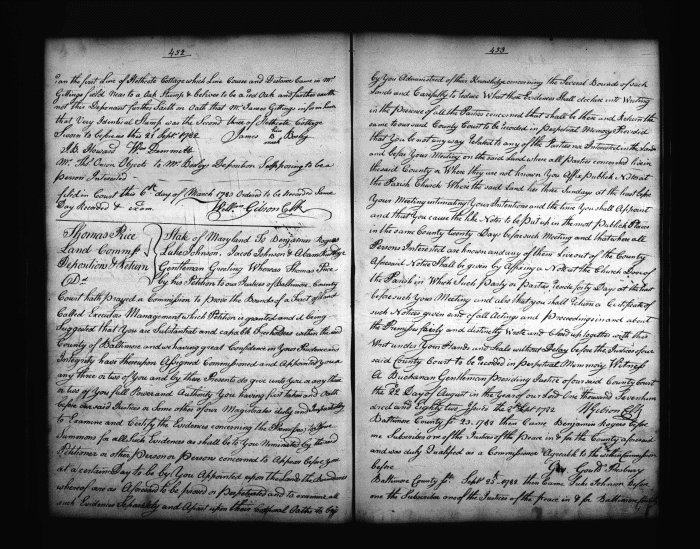 432
on the first Line of Hethcote Cottage which Line Course and Distance Came in Mr
Gittings field Near to a Oak Stump & beleves to be a red Oak and further saith
not this Deponant further Saith on Oath that Mr James Gittings inform him
that Very Identical Stump was the Second Tree of Hethcote Cottage
Sworn to before us this 28 Sept 1782 James Bosley
A B Howard Wm Dammett mark
Mr Thos Owen Objects to Mr Bosley Deposition Supposing to be a
Person Intrested
filed in Court this 6th day of March 1783 Ordered to be Recorded Same
Day Recorded & exam. Gibson Clk
Thomas Rice
Land Commss
Depositions & Return
State of Maryland To Benjamin Rogers
Luke Johnson, Jacob Johnson & Adam
Gentleman Greeting Whereas Thomas Rice
by his Petition to our Justices of Baltimore County
Court hath prayed a Commission to prove the Bounds of a Tract of Land
Called Execution Management which Petition is granted and it being
Suggested that You are Substantial and capable Freeholders within the said
County of Baltimore and we having great Confidence in Your Prudence and
Integrity have thereupon Assigned Commissioned and Appointed you or
any three or two of You and by these Presents do give unto you or any three
or two of You full Power and Authority You having first taken an Oath
before our said Justices or Some other of our Magistrates duly and Impartially
to Examine and Certify the Evidences concerning the Premises to Issue
Summons for all Such Evidences as shall be to You Nominated by the said
Petitioner or other Person or Persons concerned to Appear before you
at a Certain Day to be by You Appointed upon the Land the Boundaries
whereof are as Aforesaid to be proved or Perpetuated and to examine all
such Evidences Separately and Apart upon their Corporal Oaths to be
433
by You Administred of their Knowledge concerning the Several Bounds of such
Lands and Carefully to reduce What those Evidences Shall declare into Writing
in the Presence of all the Parties concerned that shall be there and Return the
same to our said County Court to be recorded in Perpetual Memory Provided
that You be not any way related to any of the Parties nor Intrested in the Lands
and before Your Meeting on the said Land where all Parties concerned live in
the said County or When they are not known You Affix Publick Notes at
the Parish Church Where the said Land lies three Sundays at the least before
Your Meeting intimating Your Intentions and the time You Shall Appoint
and that You cause the like Notes to be Put up in the most Publick Places
in the same County twenty Days before such Meeting and that where all
Persons Interested are known and any of them live out of the County
Aforesaid Notes Shall be given by Affixing a Note at the Church Door of
the Parish in Which Such Party or Parties reside forty Days at the least
before such Your Meeting and also that you shall Return a Certificate of
such Notices given and of all Actings and Proceedings in and about
the Premises fairly and distinctly Wrote and Closed up together with this
Writ under Your Hands and Seals without Delay before the Justices of our
said County Court to be recorded in Perpetual Memory Witness
A. Buchanan Gentleman Presiding Justice of our said County Court
the 22 Day of August in the Year of our Lord One thousand Seven hun
dred and Eighty two Issued the 3d Sept 1782 W Gibson Clk
Baltimore County ss. 23. 1782 then Came Benjamin Rogers before
me Subscriber one of the Justices of the Peace in & for the County aforesaid
and was duly Qualifyed as a Commissioner Agreeable to the within Commission
before Geo Gould Presbury
Baltimore County ss Sept 25th 1782 then Came Luke Johnson before
me the Subscriber one of the Justices of the Peace in & for Baltimore County